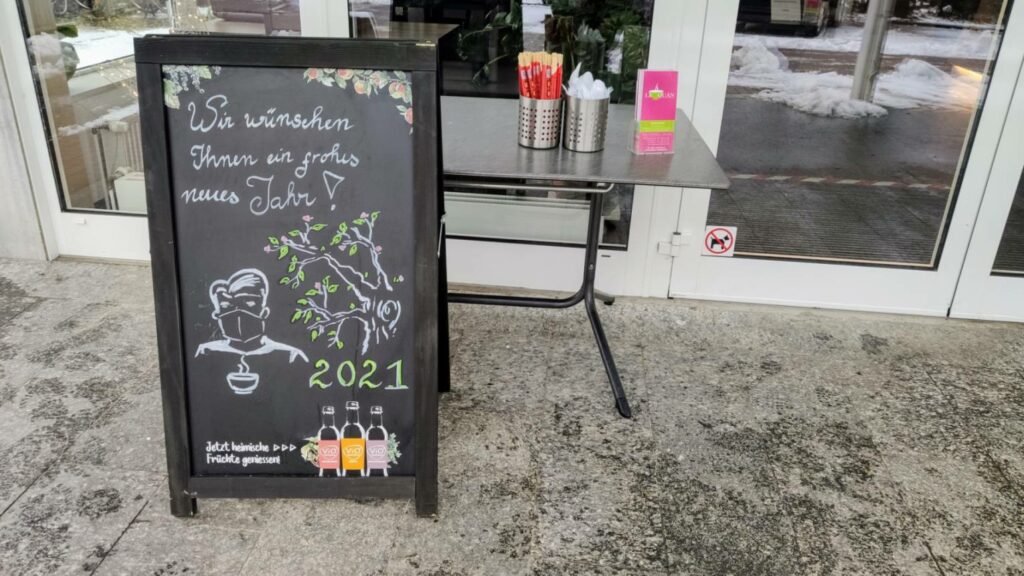 Wir wünschen
Ihnen ein frohes
neues Jahr!
2021
Jetzt heimische ▷▷▷
Früchte genießen!
ViO
ViO
ViO